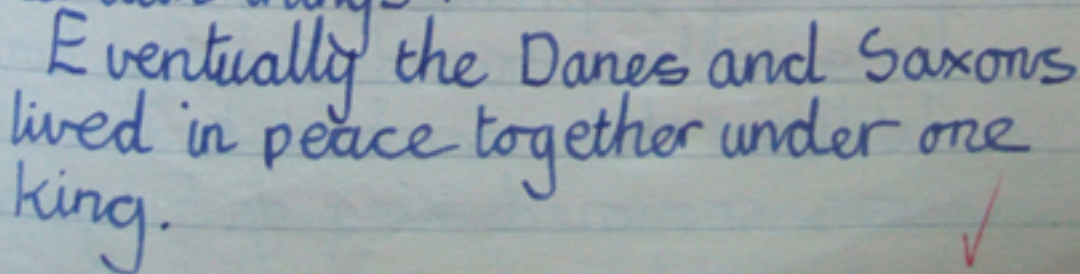 Eventually the Danes and Saxons
lived in peace together under one
king.